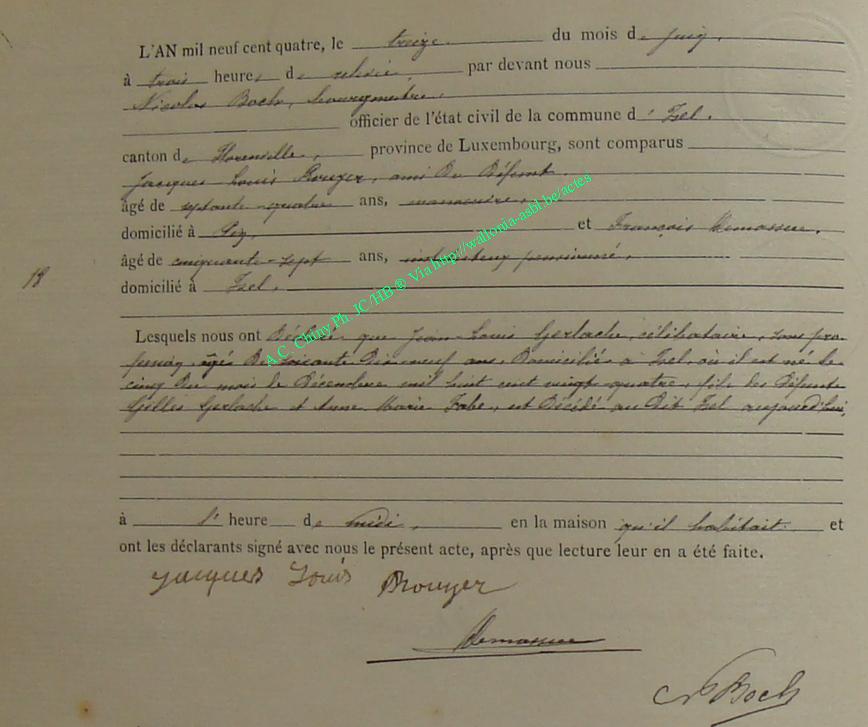 L'AN mil neuf cent quatre, le treize du mois de juin,
à trois heures de relevée, par devant nous
Nicolas Boch, bourgmestre,
officier de l'état civil de la commune d'Izel,
canton de Florenville, province de Luxembourg, sont comparus
Jacques Louis Brouyer, ami du défunt,
âgé de septante-quatre ans, manoeuvre,
domicilié à Pin, et François Demasure,
âgé de cinquante-sept ans, instituteur pensionné,
18
domicilié à Izel,
Lesquels nous ont déclaré que Jean-Louis Gerlache, célibataire, sans pro-
fession, âgé de soixante dix neuf ans, domicilié à Izel, où il est né le
cinq du mois de Décembre mil huit cent vingt-quatre, fils des défunts
Gilles Gerlache et Anne Marie Fabe, est décédé au dit Izel aujourd'hui,
à l' heure de midi, en la maison qu'il habitait et
ont les déclarants signé avec nous le présent acte, après que lecture leur en a été faite.
Jacques Louis Brouyer
N Boch
A.C. Chiny Ph. JC/HB ® Via http://wallonia-asbl.be/actes